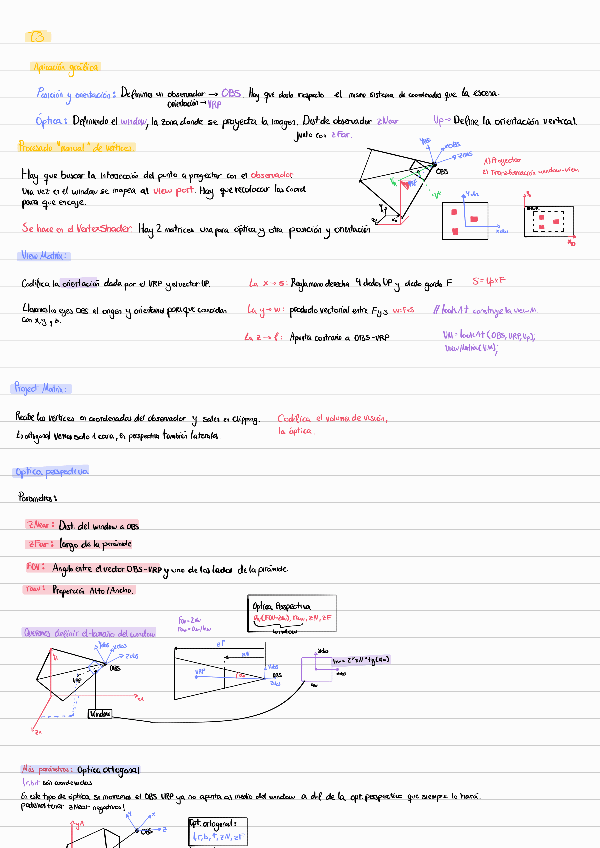 T3
Aplicación gráfica
Posición y orientación: Definimos un observador → OBS. Hay que darlo respecto el mismo sistema de coordenadas que la escena.
orientación → VRP
Óptica: Definiendo el window, la zona donde se proyecta la imagen. Dist de observador zNear Up → Define la orientación vertical.
junto con zFar.
Procesado "manual" de vértices.
Hay que buscar la intersección del punto a proyectar con el observador
Una vez en el window se mapea al view port. Hay que recolocar las coord
para que encaje.
1) Proyectar
2) Transformación window-view
OBS
Se hace en el VertexShader. Hay 2 matrices una para óptica y otra posición y orientación
View Matrix:
Codifica la orientación dada por el VRP y el vector UP.
La x → s: Regla mano derecha 4 dedos UP y dedo gordo F S = Up x F
La y → w: producto vectorial entre F y s w = F x S
// lookAt construye la view M.
La z → f: Apunta contrario a OBS-VRP
VM = lookAt (OBS, VRP, Up);
viewMatrix (VM);
Project Matrix:
Recibe los vértices en coordenadas del observador y sales en clipping.
Codifica el volumen de visión,
la óptica
Optica perspectiva
Parametros:
ZNear: Dist. del window a OBS
ZFar: largo de la pirámide
FOV: Angulo entre el vector OBS-VRP y uno de los lados de la pirámide.
raw: Proporción Alto/Ancho.
Optica Perspectiva
window
Opciones definir el tamaño del window
OBS
VRP
Window
zF
zN
Más parámetros: Optica ortogonal
l,r,b,t son coordenadas
podemos tener zNear negativos!
OBS
Opt. ortogonal:
l, r, b, t, zN, zF